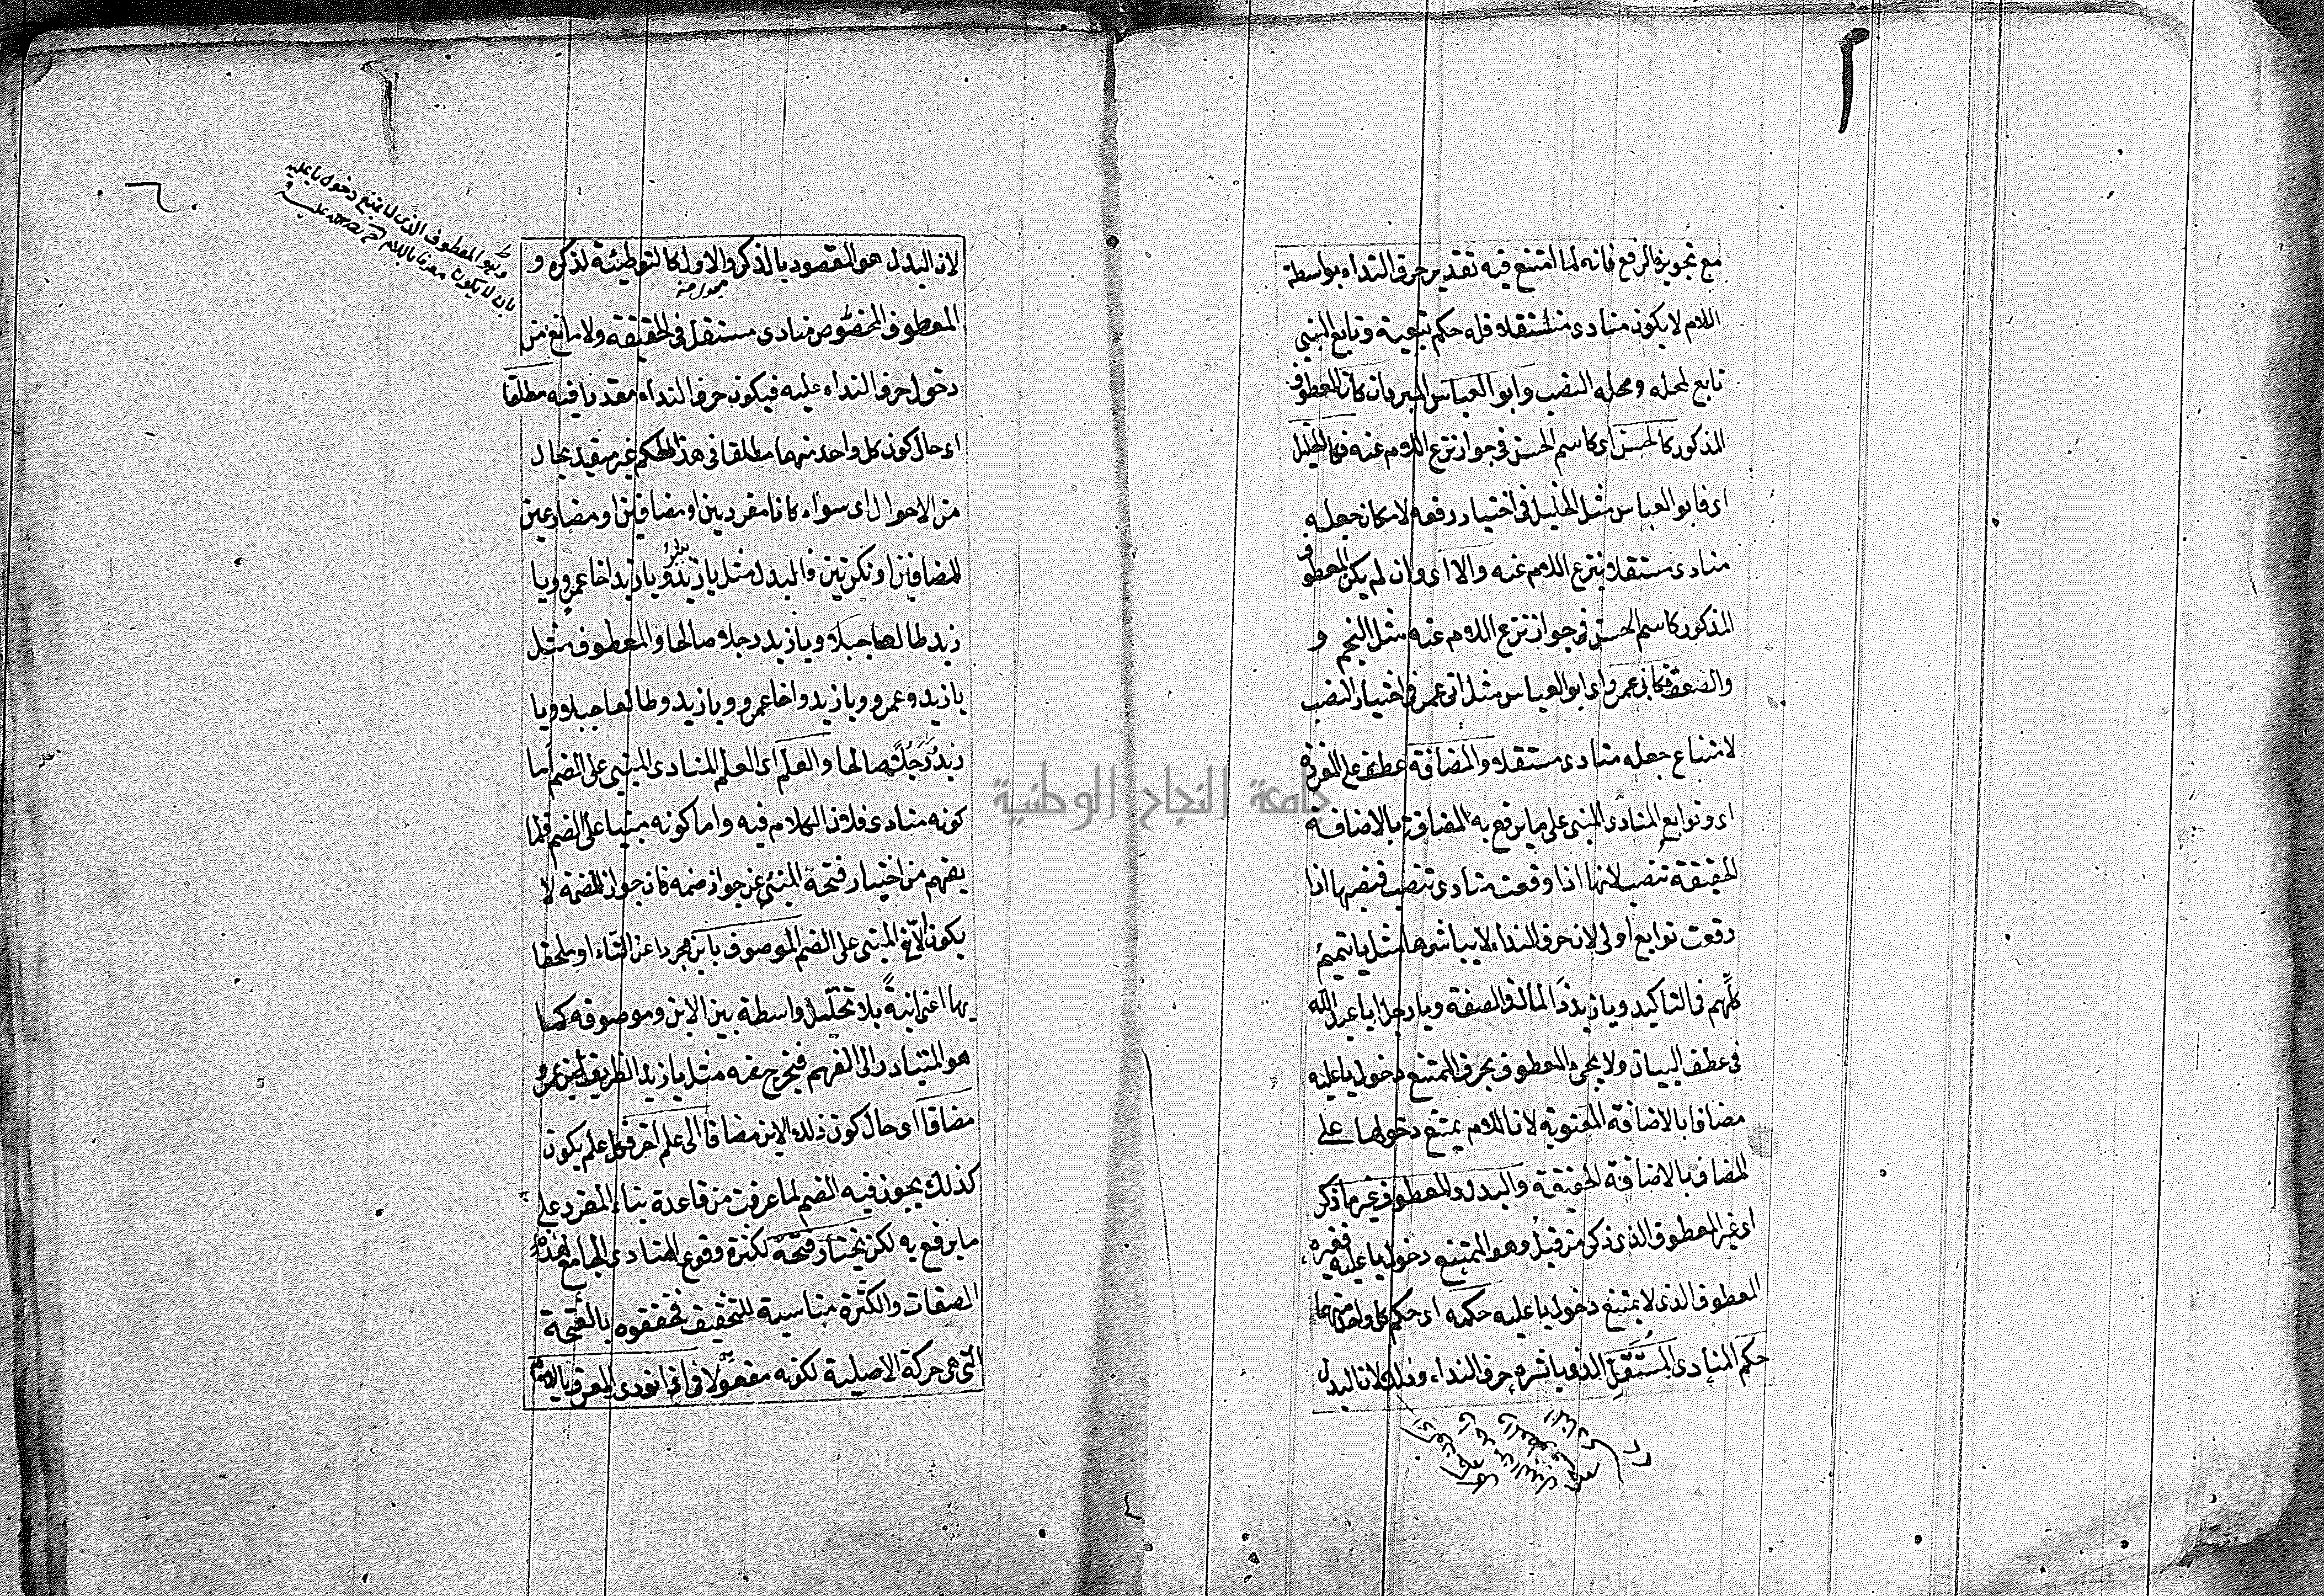 مع تجويزه الرفع فانه لما امتنع فيه تقدير حرف النداء بواسطة
اللام لا يكون منادى مستقلا فله حكم تبعية وتابع المبني
تابع لمحله ومحله النصب وابو العباس المبرد ان كان المعطوف
المذكور كالحسن اى كاسم الحسن فى جواز نزع اللام عنه فكالخليل
اى فابو العباس مثل الخليل فى اختيار رفعه لامكان جعله
منادى مستقلا بنزع اللام عنه والا اى وان لم يكن المعطوف
المذكور كاسم الحسن فى جواز نزع اللام عنه مثل النجم و
والصعق فكابى عمرو اى ابو العباس مثل ابى عمرو فى اختيار النصب
لامتناع جعله منادى مستقلا والمضافة عطف على المفردة
اى وتوابع المنادى المبنى على ما يرفع به المضافة بالاضافة
الحقيقة تنصب لانها اذا وقعت منادى تنصب فنصبها اذا
وقعت توابع اولى لان حرف النداء لا يباشرها مثل يا تميم
كلهم فى التاكيد ويا زيد ذا المال فى الصفة ويا رجل ابا عبد الله
فى عطف البيان ولا يجئ المعطوف بحرف الممتنع دخول يا عليه
مضافا بالاضافة المعنوية لان اللام يمتنع دخولها على
المضاف بالاضافة الحقيقة والبدل والمعطوف غير ما ذكر
اى غير المعطوف الذى ذكر من قبل وهو الممتنع دخول يا عليه فغيره
المعطوف الذى لا يمتنع دخول يا عليه حكمه اى حكم كل واحد منهما
حكم المنادى المستقل الذى باشره حرف النداء وذلك لان البدل
وهو المعطوف الذى لا يمتنع دخول يا عليه
بان لا يكون معرفا باللام
لان البدل هو المقصود بالذكر والاول كالتوطئة لذكره و
المعطوف المخصوص منادى مستقل فى الحقيقة ولا مانع من
دخول حرف النداء عليه فيكون حرف النداء مقدرا فيه مطلقا
اى حال كون كل واحد منهما مطلقا فى هذا الحكم غير مقيد بحال
من الاحوال اى سواء كانا مفردين او مضافين او مضارعين
للمضافين او نكرتين فالبدل مثل يا زيد بشر ويا زيد اخا عمرو ويا
زيد طالعا جبلا ويا زيد رجلا صالحا والمعطوف مثل
يا زيد وعمرو ويا زيد واخا عمرو ويا زيد وطالعا جبلا ويا
زيد ورجلا صالحا والعلم اى العلم المنادى المبنى على الضم اما
كونه منادى فلان الكلام فيه واما كونه مبنيا على الضم فلما
يفهم من اختيار فتحة المبنى عن جواز ضمه فان جواز الضمة لا
يكون الا فى المبنى على الضم الموصوف بابن مجردا عن التاء او ملحقا
بها اعنى ابنة بلا تخلل واسطة بين الابن وموصوفه كما
هو المتبادر الى الفهم فيخرج عنه مثل يا زيد الظريف ابن عمرو
مضافا اى حال كون ذلك الابن مضافا الى علم اخر فكل علم يكون
كذلك يجوز فيه الضم لما عرفت من قاعدة بناء المفرد على
ما يرفع به لكن يختار فتحه لكثرة وقوع المنادى الجامع لهذه
الصفات والكثرة مناسبة للتخفيف فخففوه بالفتحة
التى هى حركة الاصلية لكونه مفعولا واذا نودى المعرف باللام
جامعة النجاح الوطنية